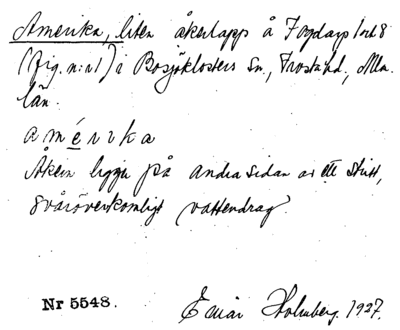 Amerika, liten åkerlapp å Fogdarp 1 och 8
(fig. n:r 1) i Bosjöklosters Sn., Frosta hd, Mlm.
län.
amérika
Åkern ligger på andra sidan av ett stritt,
svåröverkomligt vattendrag.
Nr 5548.
Einar Holmberg. 1927.